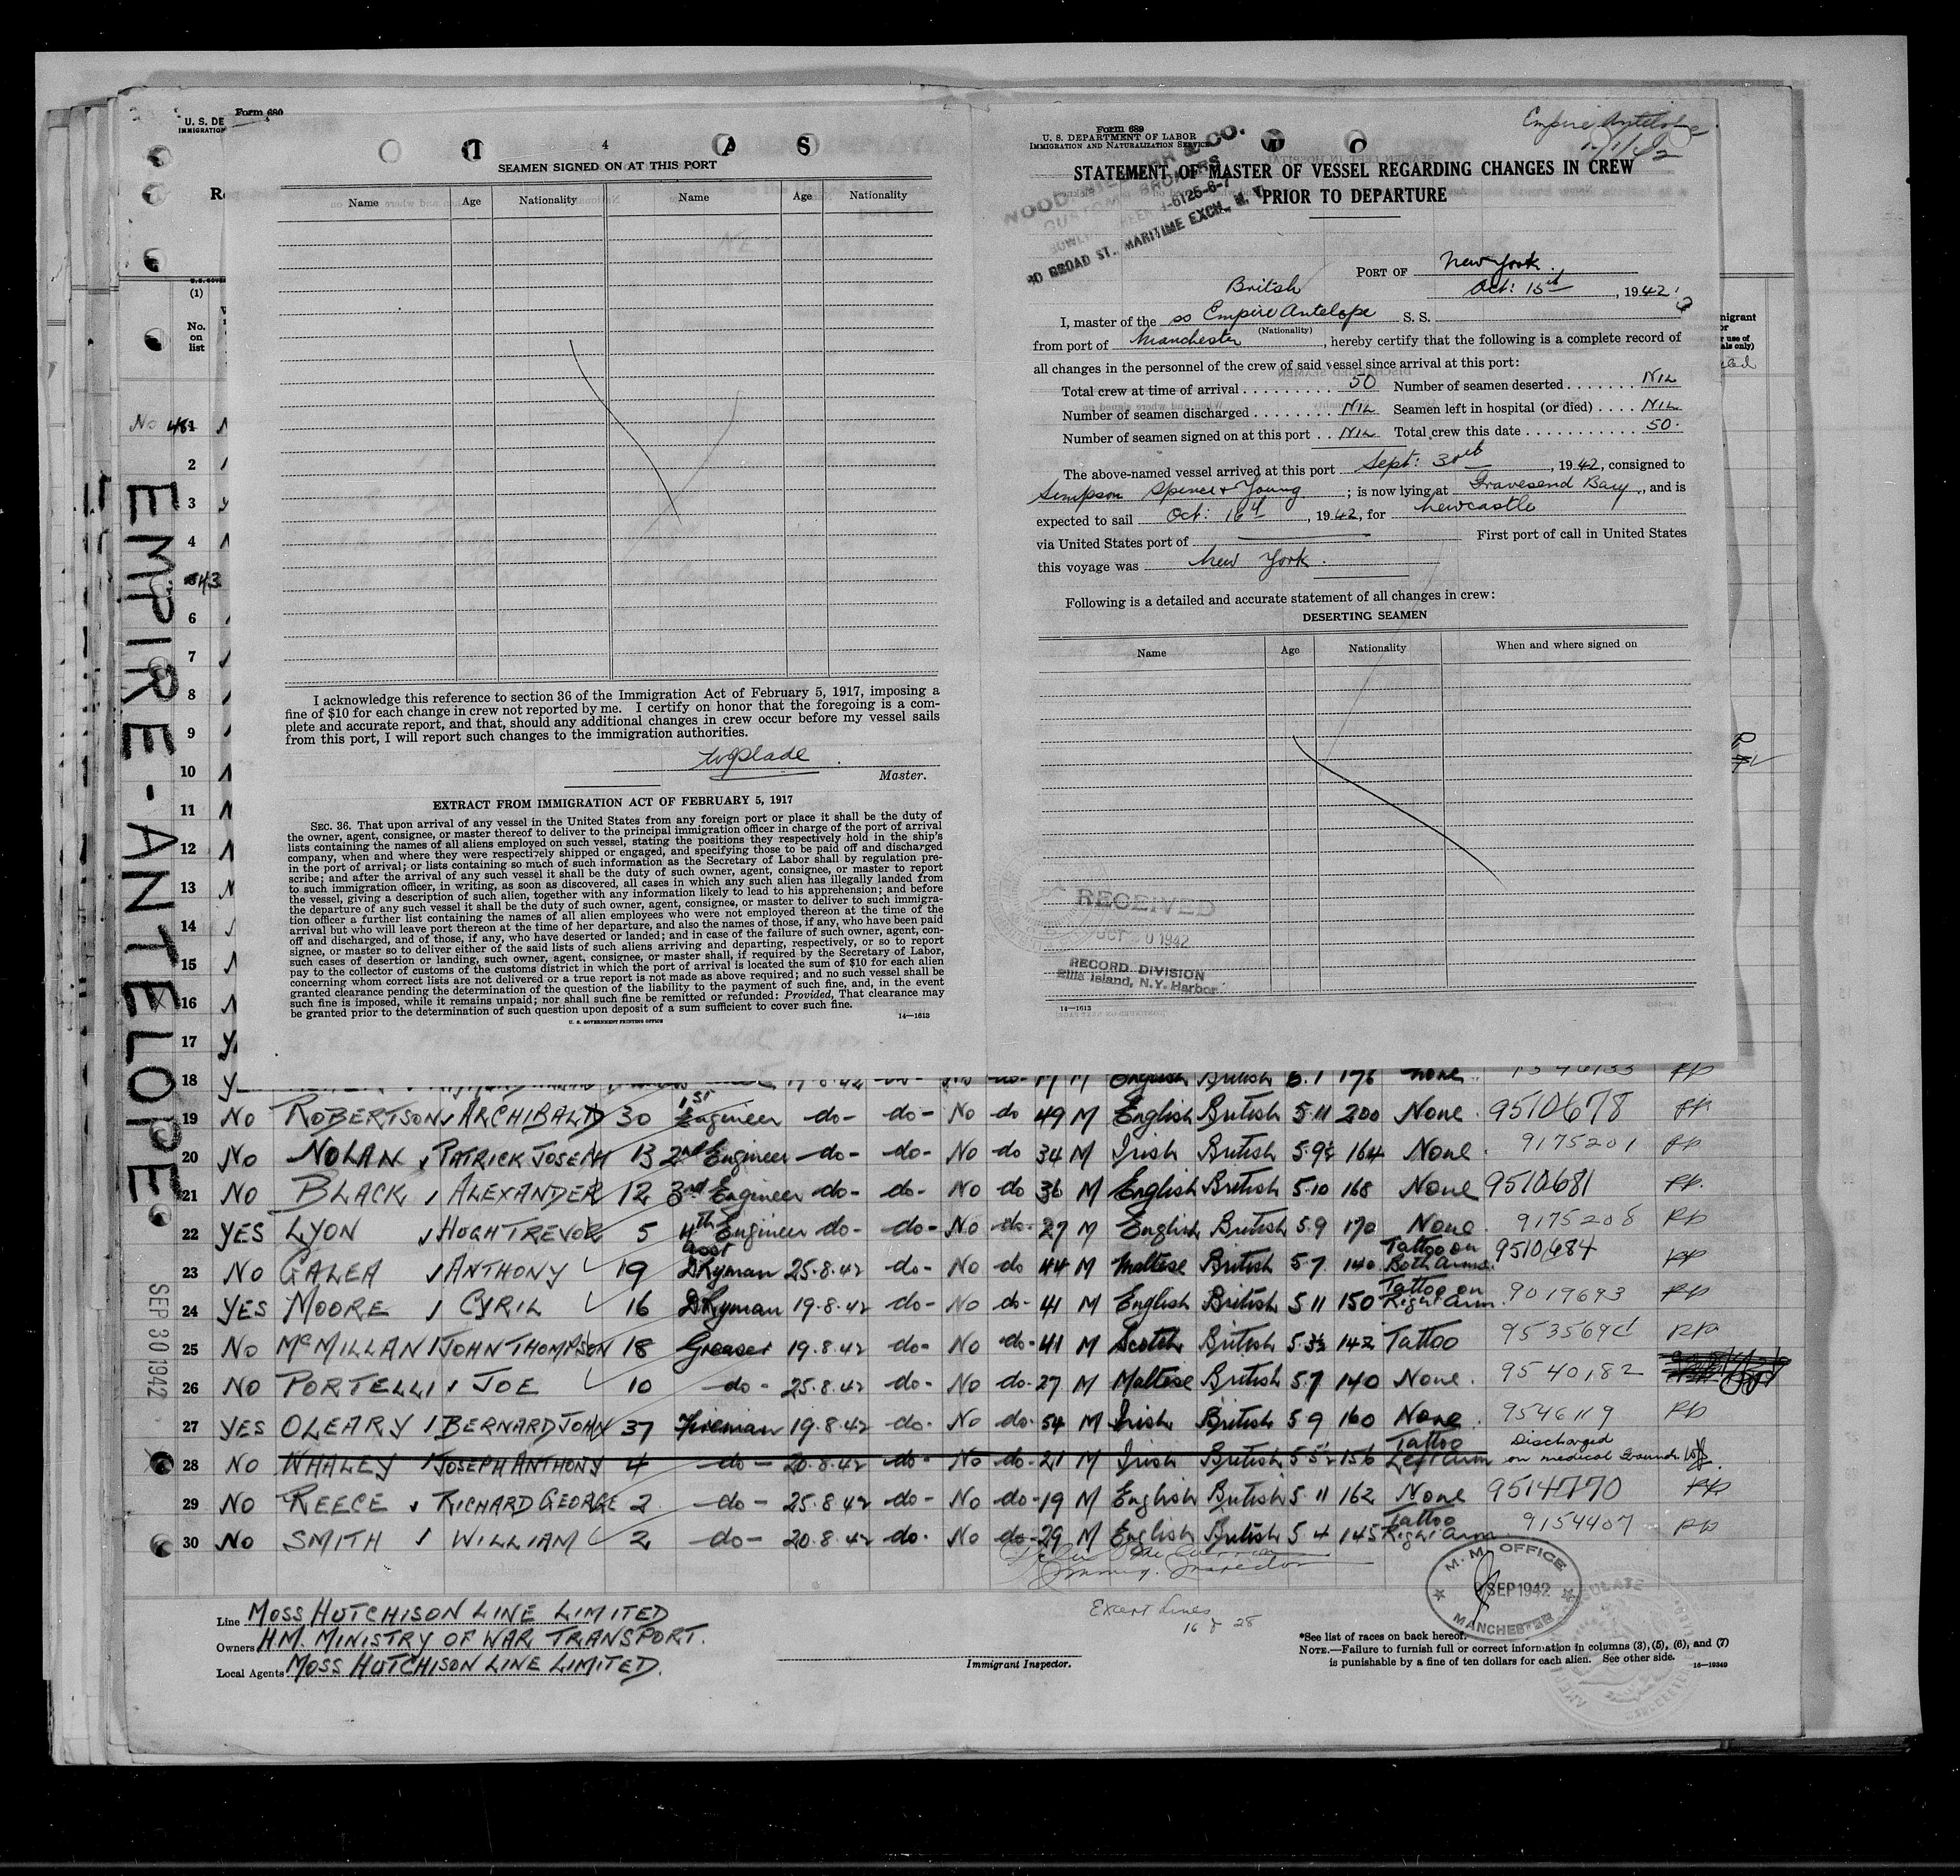 Form 680
U. S. DE
IMMIGRATION
4
SEAMEN SIGNED ON AT THIS PORT
Name Age Nationality Name Age Nationality
I acknowledge this reference to section 36 of the Immigration Act of February 5, 1917, imposing a
fine of $10 for each change in crew not reported by me. I certify on honor that the foregoing is a com-
plete and accurate report, and that, should any additional changes in crew occur before my vessel sails
from this port, I will report such changes to the immigration authorities.
Master.
EXTRACT FROM IMMIGRATION ACT OF FEBRUARY 5, 1917
SEC. 36. That upon arrival of any vessel in the United States from any foreign port or place it shall be the duty of
the owner, agent, consignee, or master thereof to deliver to the principal immigration officer in charge of the port of arrival
lists containing the names of all aliens employed on such vessel, stating the positions they respectively hold in the ship's
company, when and where they were respectively shipped or engaged, and specifying those to be paid off and discharged
in the port of arrival; or lists containing so much of such information as the Secretary of Labor shall by regulation pre-
scribe; and after the arrival of any such vessel it shall be the duty of such owner, agent, consignee, or master to report
to such immigration officer, in writing, as soon as discovered, all cases in which any such alien has illegally landed from
the vessel, giving a description of such alien, together with any information likely to lead to his apprehension; and before
the departure of any such vessel it shall be the duty of such owner, agent, consignee, or master to deliver to such immigra-
tion officer a further list containing the names of all alien employees who were not employed thereon at the time of the
arrival but who will leave port thereon at the time of her departure, and also the names of those, if any, who have been paid
off and discharged, and of those, if any, who have deserted or landed; and in case of the failure of such owner, agent, con-
signee, or master so to deliver either of the said lists of such aliens arriving and departing, respectively, or so to report
such cases of desertion or landing, such owner, agent, consignee, or master shall, if required by the Secretary of Labor,
pay to the collector of customs of the customs district in which the port of arrival is located the sum of $10 for each alien
concerning whom correct lists are not delivered or a true report is not made as above required; and no such vessel shall be
granted clearance pending the determination of the question of the liability to the payment of such fine, and, in the event
such fine is imposed, while it remains unpaid; nor shall such fine be remitted or refunded: Provided, That clearance may
be granted prior to the determination of such question upon deposit of a sum sufficient to cover such fine.
U. S. GOVERNMENT PRINTING OFFICE 14—1613
Empire Antelope
Form 689
U. S. DEPARTMENT OF LABOR
IMMIGRATION AND NATURALIZATION SERVICE
STATEMENT OF MASTER OF VESSEL REGARDING CHANGES IN CREW
PRIOR TO DEPARTURE
BROAD ST., MARITIME EXCH., N. Y.
PORT OF New York
Oct: 15th, 1942
British
I, master of the ss Empire Antelope S. S.
(Nationality)
from port of Manchester, hereby certify that the following is a complete record of
all changes in the personnel of the crew of said vessel since arrival at this port:
Total crew at time of arrival 50 Number of seamen deserted NIL
Number of seamen discharged NIL Seamen left in hospital (or died) NIL
Number of seamen signed on at this port NIL Total crew this date 50
The above-named vessel arrived at this port Sept: 30th, 1942, consigned to
Simpson Spence & Young; is now lying at Gravesend Bay, and is
expected to sail Oct: 16th, 1942, for Newcastle
via United States port of First port of call in United States
this voyage was New York.
Following is a detailed and accurate statement of all changes in crew:
DESERTING SEAMEN
Name Age Nationality When and where signed on
RECEIVED
1942
RECORD DIVISION
Ellis Island, N.Y. Harbor
14—1613
EMPIRE-ANTELOPE
SEP 30 1942
(1)
No. on list
2
3
4
6
7
8
9
10
11
12
13
14
15
16
17
18 6.1 176 None
19 NO ROBERTSON ARCHIBALD 30 1st Engineer -do- -do- No do 49 M English British 5.11 200 None 9510678
20 NO NOLAN PATRICK JOSEPH 13 2nd Engineer -do- -do- No do 34 M Irish British 5.9½ 164 None 9175201
21 NO BLACK ALEXANDER 12 3rd Engineer -do- -do- No do 36 M English British 5.10 168 None 9510681
22 YES LYON HUGH TREVOR 5 4th Engineer -do- -do- No -do- 27 M English British 5.9 170 None 9175208
23 NO GALEA ANTHONY 19 Asst Dkyman 25.8.42 do- No do 44 M Maltese British 5.7 140 Tattoo on Both Arms 9510684
24 YES MOORE CYRIL 16 Dkyman 19.8.42 do- No do- 41 M English British 5.11 150 Tattoo on Right Arm 9019693
25 NO McMILLAN JOHN THOMPSON 18 Greaser 19.8.42 do- No do- 41 M Scotch British 5.3½ 142 Tattoo
26 NO PORTELLI JOE 10 -do- 25.8.42 do- No do- 27 M Maltese British 5.7 140 None 9540182
27 YES OLEARY BERNARD JOHN 37 Fireman 19.8.42 do- No do- 54 M Irish British 5.9 160 None 9546119
28 NO WHALEY JOSEPH ANTHONY 4 -do- 20.8.42 do- No do- 21 M Irish British 5.5½ 156 Tattoo Left Arm Discharged on medical Grounds
29 NO REECE RICHARD GEORGE 2 -do- 25.8.42 do- No do- 19 M English British 5.11 162 None 9514770
30 NO SMITH WILLIAM 2 -do- 20.8.42 do- No do- 29 M English British 5.4 145 Tattoo Right Arm 9154407
Immig. Inspector
Except Lines
16 & 28
Line MOSS HUTCHISON LINE LIMITED
Owners H.M. MINISTRY OF WAR TRANSPORT.
Local Agents MOSS HUTCHISON LINE LIMITED.
Immigrant Inspector.
M. M. OFFICE
SEP 1942
MANCHESTER
*See list of races on back hereof.
NOTE.—Failure to furnish full or correct information in columns (3), (5), (6), and (7)
is punishable by a fine of ten dollars for each alien. See other side. 16—19340